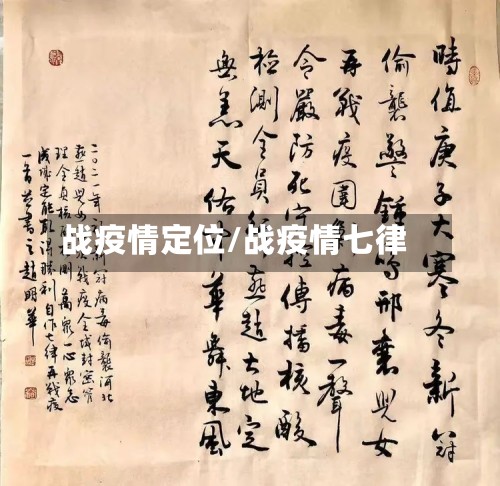 時值庚子大寒冬新冠
偷襲警鐘鳴邢襄兒女
再戰疫圍病毒一聲
令嚴防死守傳播核酸
檢測全員燕趙大地定
無恙天佑華舞東風
二〇二一年病毒偷襲河北
燕趙兒女戰疫全城封
理全員核測萬眾一心眾志
成城定能取得勝利自作七律再戰疫
一首並書之趙明華
战疫情定位/战疫情七律